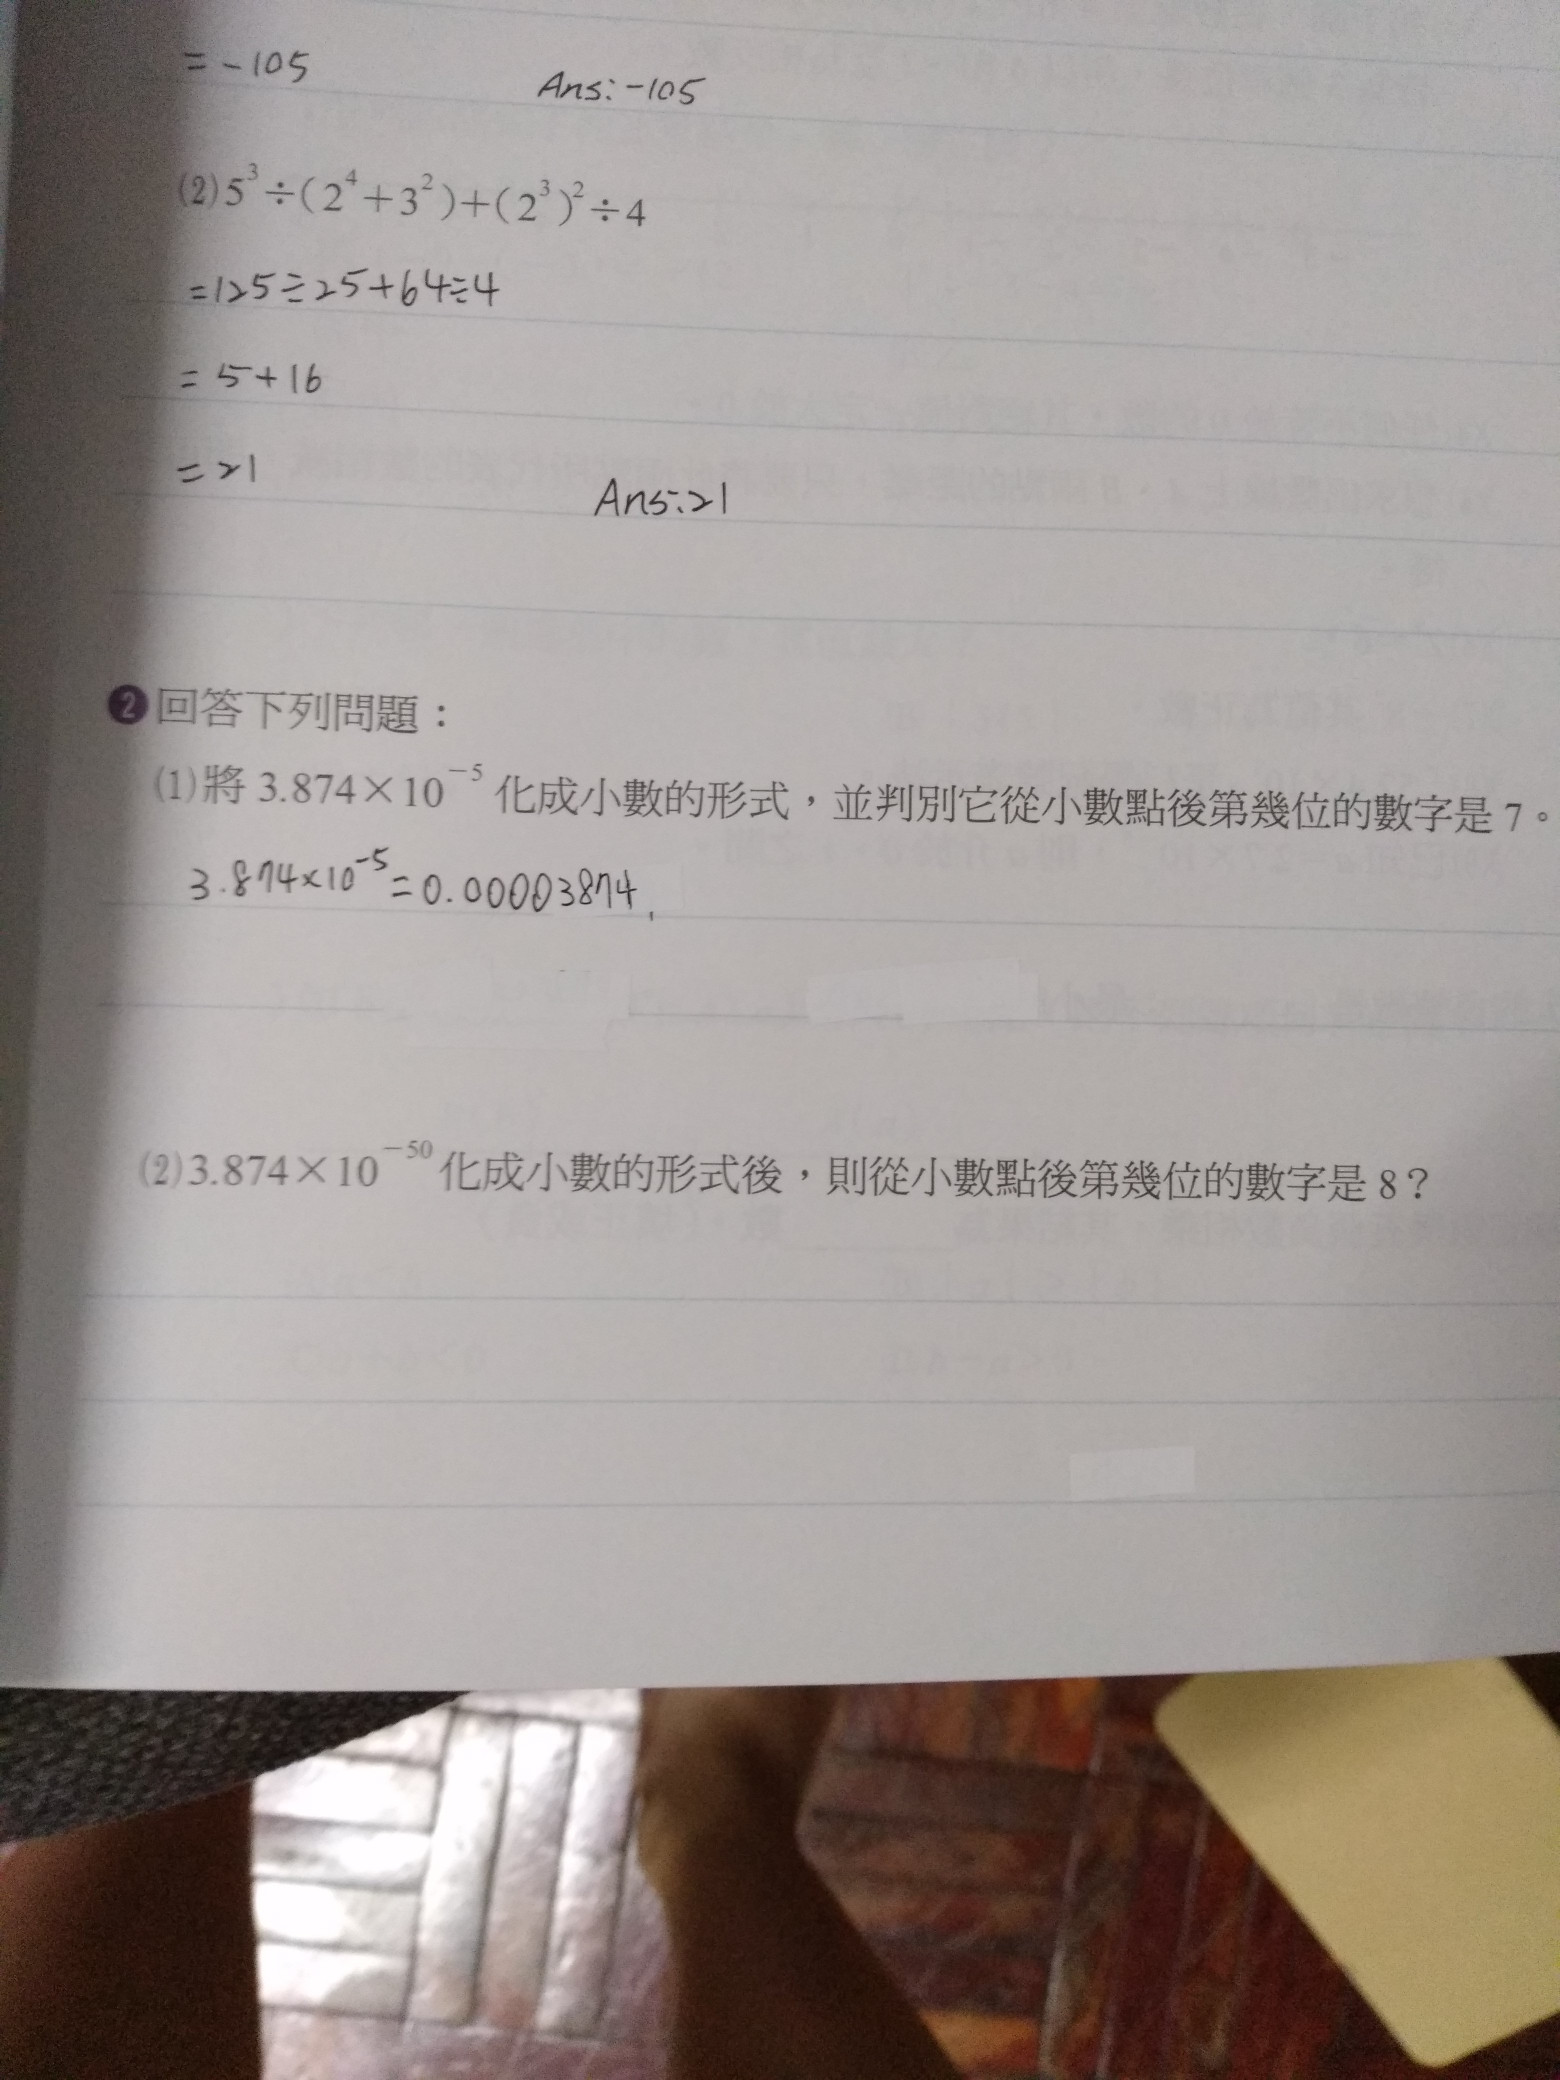 = -105
Ans: -105
(2) 5³÷(2⁴+3²)+(2³)²÷4
=125÷25+64÷4
= 5+16
=21
Ans:21
2 回答下列問題：
(1) 將 3.874×10⁻⁵ 化成小數的形式，並判別它從小數點後第幾位的數字是 7。
3.874×10⁻⁵=0.00003874,
(2) 3.874×10⁻⁵⁰ 化成小數的形式後，則從小數點後第幾位的數字是 8？